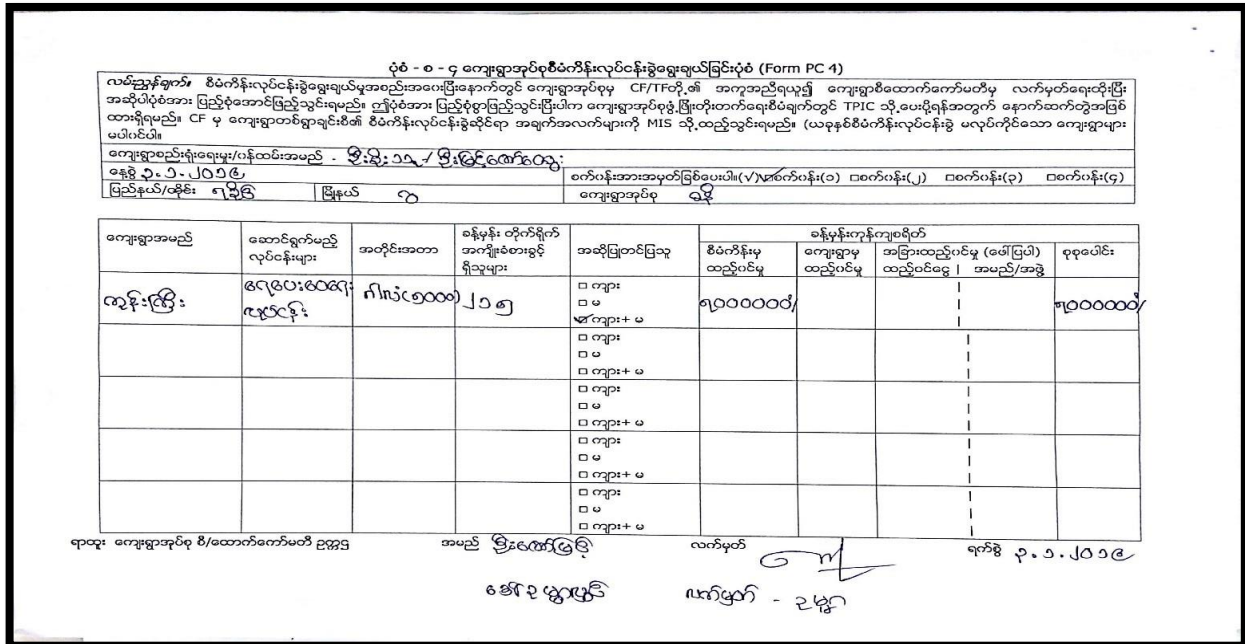 ပုံစံ - စ - ၄ ကျေးရွာအုပ်စုစီမံကိန်းလုပ်ငန်းခွဲရွေးချယ်ခြင်းပုံစံ (Form PC 4)
လမ်းညွှန်ချက်။ စီမံကိန်းလုပ်ငန်းခွဲရွေးချယ်မှုအစည်းအဝေးပြီးနောက်တွင် ကျေးရွာအုပ်စုမှ CF/TFတို့၏ အကူအညီရယူ၍ ကျေးရွာစီထောက်ကော်မတီမှ လက်မှတ်ရေးထိုးပြီး
အဆိုပါပုံစံအား ပြည့်စုံအောင်ဖြည့်သွင်းရမည်။ ဤပုံစံအား ပြည့်စုံစွာဖြည့်သွင်းပြီးပါက ကျေးရွာအုပ်စုဖွံ့ဖြိုးတိုးတက်ရေးစီမံချက်တွင် TPIC သို့ပေးပို့ရန်အတွက် နောက်ဆက်တွဲအဖြစ်
ထားရှိရမည်။ CF မှ ကျေးရွာတစ်ရွာချင်းစီ၏ စီမံကိန်းလုပ်ငန်းခွဲဆိုင်ရာ အချက်အလက်များကို MIS သို့ထည့်သွင်းရမည်။ (ယခုနှစ်စီမံကိန်းလုပ်ငန်းခွဲ မလုပ်ကိုင်သော ကျေးရွာများ
မပါဝင်ပါ။
ကျေးရွာစည်းရုံးရေးမှူး/ဝန်ထမ်းအမည် -
နေ့စွဲ ၃.၁.၂၀၁၉ စက်ဝန်းအားအမှတ်ခြစ်ပေးပါ။(√) စက်ဝန်း(၁) □စက်ဝန်း(၂) □စက်ဝန်း(၃) □စက်ဝန်း(၄)
ပြည်နယ်/တိုင်း ရခိုင် မြို့နယ် ဂွ ကျေးရွာအုပ်စု
ကျေးရွာအမည် ဆောင်ရွက်မည့် လုပ်ငန်းများ အတိုင်းအတာ ခန့်မှန်း တိုက်ရိုက် အကျိုးခံစားခွင့် ရှိသူများ အဆိုပြုတင်ပြသူ ခန့်မှန်းကုန်ကျစရိတ်
စီမံကိန်းမှ ထည့်ဝင်မှု ကျေးရွာမှ ထည့်ဝင်မှု အခြားထည့်ဝင်မှု (ဖော်ပြပါ) ထည့်ဝင်ငွေ | အမည်/အဖွဲ့ စုစုပေါင်း
ကွန်းကြီး ရေပေးဝေရေး လုပ်ငန်း ဂါလံ(၅၀၀၀) ၂၁၅ □ ကျား
□ မ
ကျား+ မ ၇၀၀၀၀၀၀ိ/ ၇၀၀၀၀၀၀ိ/
□ ကျား
□ မ
□ ကျား+ မ
□ ကျား
□ မ
□ ကျား+ မ
□ ကျား
□ မ
□ ကျား+ မ
□ ကျား
□ မ
□ ကျား+ မ
ရာထူး ကျေးရွာအုပ်စု စီ/ထောက်ကော်မတီ ဥက္ကဌ အမည် လက်မှတ် ရက်စွဲ ၃.၁.၂၀၁၉
လက်မှတ် -